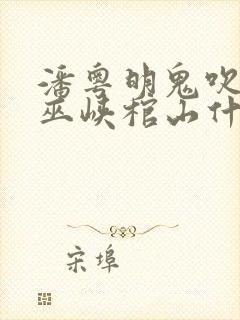 潘粤明鬼吹
巫峡棺山什
宋埠